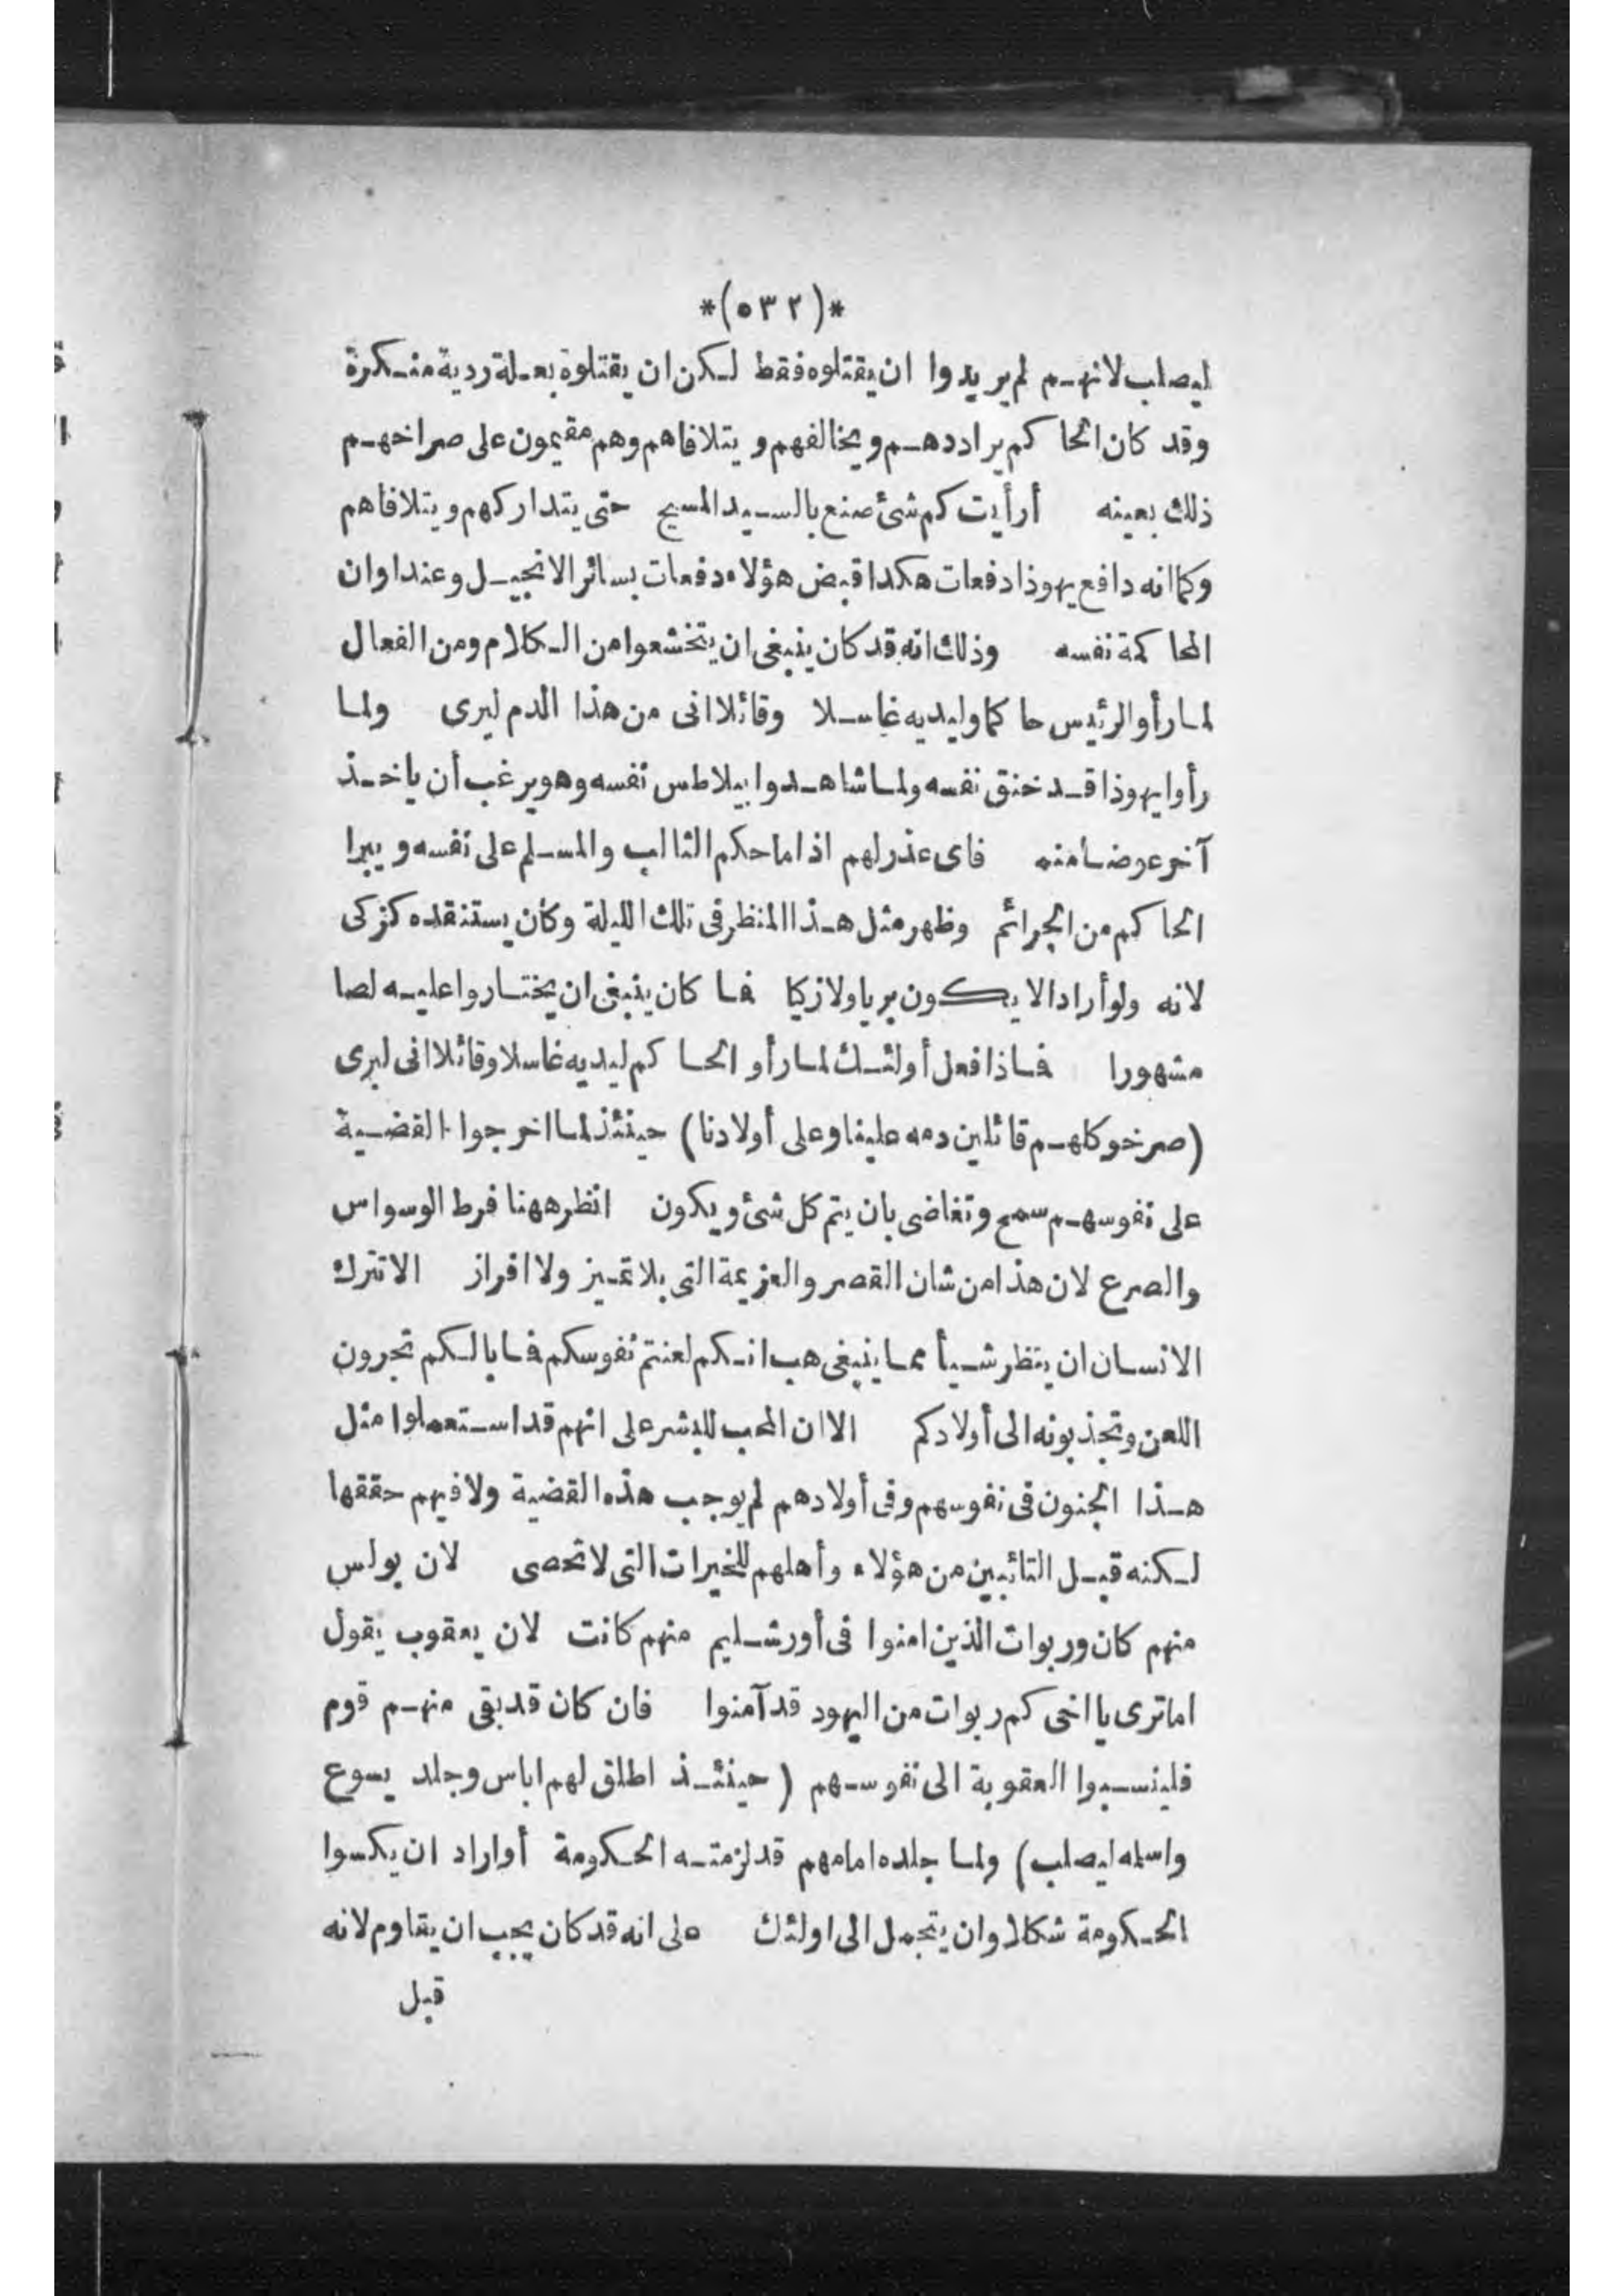 *(٥٣٢)*
ليصلب لانهم لم يريدوا ان يقتلوه فقط لكن ان يقتلوه بعلة ردية منكرة
وقد كان الحاكم يراددهم ويخالفهم ويتلافاهم وهم مقيمون على صراخهم
ذلك بعينه أرأيت كم شئ صنع بالسيد المسيح حتى يتداركهم ويتلافاهم
وكما انه دافع يهوذا دفعات هكذا قبض هؤلاء دفعات بسائر الانجيل وعند اوان
المحاكمة نفسه وذلك انه قد كان ينبغى ان يتخشعوا من الكلام ومن الفعال
لما رأوا الرئيس حاكما وليديه غاسلا وقائلا انى من هذا الدم لبرى ولما
رأوا يهوذا قد خنق نفسه ولما شاهدوا بيلاطس نفسه وهو يرغب أن ياخذ
آخر عوضا منه فاى عذر لهم اذا ما حكم الثالب والمسلم على نفسه ويبرا
الحاكم من الجرائم وظهر مثل هذا المنظر فى تلك الليلة وكان يستنقده كزكى
لانه ولو أراد الا يكون بريا ولا زكيا فما كان ينبغى ان يختاروا عليه لصا
مشهورا فماذا فعل أولئك لما رأو الحاكم ليديه غاسلا وقائلا انى لبرى
(صرخو كلهم قائلين دمه علينا وعلى أولادنا) حينئذ لما اخرجوا القضية
على نفوسهم سمح وتغاضى بان يتم كل شئ ويكون انظر ههنا فرط الوسواس
والصرع لان هذا من شان القصر والعزيمة التى بلا تميز ولا افراز الا تترك
الانسان ان ينظر شيأ مما ينبغى هب انكم لعنتم نفوسكم فما بالكم تجرون
اللعن وتجذبونه الى أولادكم الا ان المحب للبشر على انهم قد استعملوا مثل
هذا الجنون فى نفوسهم وفى أولادهم لم يوجب هذه القضية ولا فيهم حققها
لكنه قبل التائبين من هؤلاء وأهلهم للخيرات التى لا تحصى لان بولس
منهم كان وربوات الذين امنوا فى أورشليم منهم كانت لان يعقوب يقول
اما ترى يا اخى كم ربوات من اليهود قد آمنوا فان كان قد بقى منهم قوم
فلينسبوا العقوبة الى نفوسهم (حينئذ اطلق لهم اباس وجلد يسوع
واسله ليصلب) ولما جلده امامهم قد لزمته الحكومة أو اراد ان يكسوا
الحكومة شكلا وان يتجمل الى اولئك على انه قد كان يجب ان يقاوم لانه
قبل